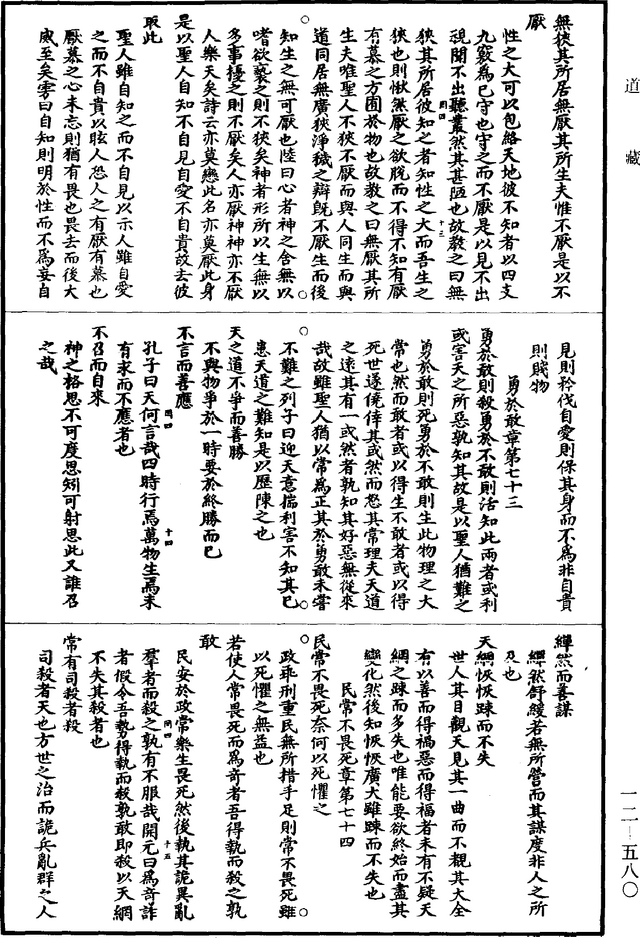 道藏
無狹其所居無厭其所生夫惟不厭是以不
厭
性之大可以包絡天地彼不知者以四支
九竅爲己守也守之而不厭是以見不出
視聞不出聽蕞然其甚陋也故敎之曰無
狹其所居彼知之者知性之大而吾生之
狹也則愀然厭之欲脫而不得不知有厭
有慕之方囿於物也故敎之曰無厭其所
生夫唯聖人不狹不厭而與人同生而與
道同居無廣狹淨穢之辯旣不厭生而後
知生之無可厭也陸曰心者神之舍無以
嗜欲褻之則不狹矣神者形所以生無以
多事擾之則不厭矣人亦厭神神亦不厭
人樂天矣詩云亦莫戀此名亦莫厭此身
是以聖人自知不自見自愛不自貴故去彼
取此
聖人雖自知之而不自見以示人雖自愛
之而不自貴以眩人恐人之有厭有慕也
厭慕之心未忘則猶有畏也畏去而後大
威至矣雱曰自知則明於性而不爲妄自
見則矜伐自愛則保其身而不爲非自貴
則賤物
勇於敢章第七十三
勇於敢則殺勇於不敢則活知此兩者或利
或害天之所惡孰知其故是以聖人猶難之
勇於敢則死勇於不敢則生此物理之大
常也然而敢者或以得生不敢者或以得
死世遂僥倖其或然而怱其常理夫天道
之遠其有一或然者孰知其好惡無從來
哉故雖聖人猶以常爲正其於勇敢未嘗
不難之列子曰迎天意揣利害不知其已
患天道之難知是以歷陳之也
天之道不爭而善勝
不與物爭於一時要於終勝而已
不言而善應
孔子曰天何言哉四時行焉萬物生焉未
有求而不應者也
不召而自來
神之格思不可度思矧可射思此又誰召
之哉
繟然而善謀
繟然舒緩若無所營而其謀度非人之所
及也
天網恢恢踈而不失
世人其目觀天見其一曲而不覩其大全
有以善而得禍惡而得福者未有不疑天
網之踈而多失也唯能要欲終始而盡其
變化然後知恢恢廣大雖踈而不失也
民常不畏死章第七十四
民常不畏死奈何以死懼之
政乖刑重民無所措手足則常不畏死雖
以死懼之無益也
若使人常畏死而爲奇者吾得執而殺之孰
敢
民安於政常樂生畏死然後執其詭異亂
羣者而殺之孰有不服哉開元曰爲奇詐
者假令吾勢得執而殺孰敢即殺以天網
不失其殺者也
常有司殺者殺
司殺者天也方世之治而詭兵亂群之人
一二—五八〇